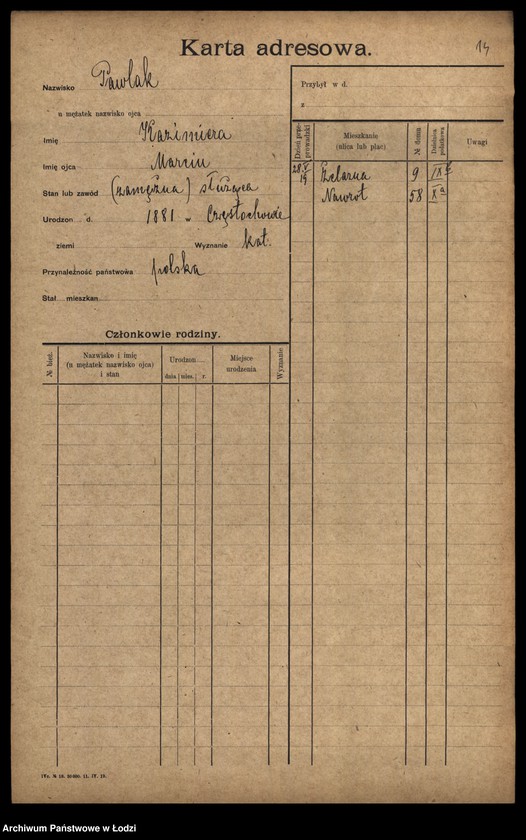 Karta adresowa.
14
Nazwisko Pawlak
u mężatek nazwisko ojca
Imię Kazimiera
Imię ojca Marcin
Stan lub zawód (zamężna) służąca
Urodzon d. 1881 w Częstochowie
ziemi Wyznanie kat.
Przynależność państwowa polska
Stał mieszkan.
Członkowie rodziny.
№ bież.
Nazwisko i imię
(u mężatek nazwisko ojca)
i stan
Urodzon
dnia mies. r.
Miejsce
urodzenia
Wyznanie
Przybył w d.
z
Dzień prze-
prowadzki
Mieszkanie
(ulica lub plac)
№ domu
Dzielnica
policyjna
Uwagi
28 V 19 9 IX
Nawrot 58 X a
Archiwum Państwowe w Łodzi